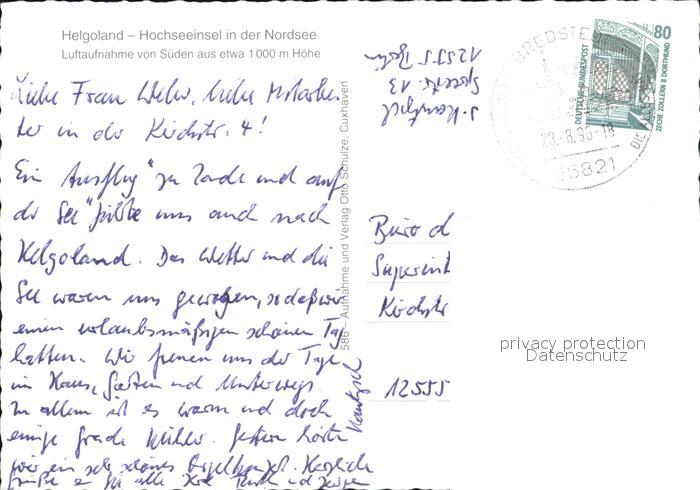 Helgoland – Hochseeinsel in der Nordsee
Luftaufnahme von Süden aus etwa 1000 m Höhe
Liebe Frau Weber, liebe Mitarbei-
ter in der Kirchstr. 4!
Ein Ausflug "zu Lande und auf
der See" führte uns auch nach
Helgoland. Das Wetter und die
See waren uns gewogen, sodaß wir
einen urlaubsmäßigen schönen Tag
hatten. Wir freuen uns der Tage
im Haus, Garten und Unterwegs.
Zu allem ist es warm und doch
einige Grade kühler. Gestern hörten
wir ein sehr schönes Orgelkonzert. Herzliche
Grüße an Sie alle
586 – Aufnahme und Verlag Otto Schulze, Cuxhaven
12555 Berlin
13
80
DEUTSCHE BUNDESPOST
ZECHE ZOLLERN II DORTMUND
BREDSTE
28.-8.96-18
25821
Büro d
Superint
Kirchstr
12555
privacy protection
Datenschutz